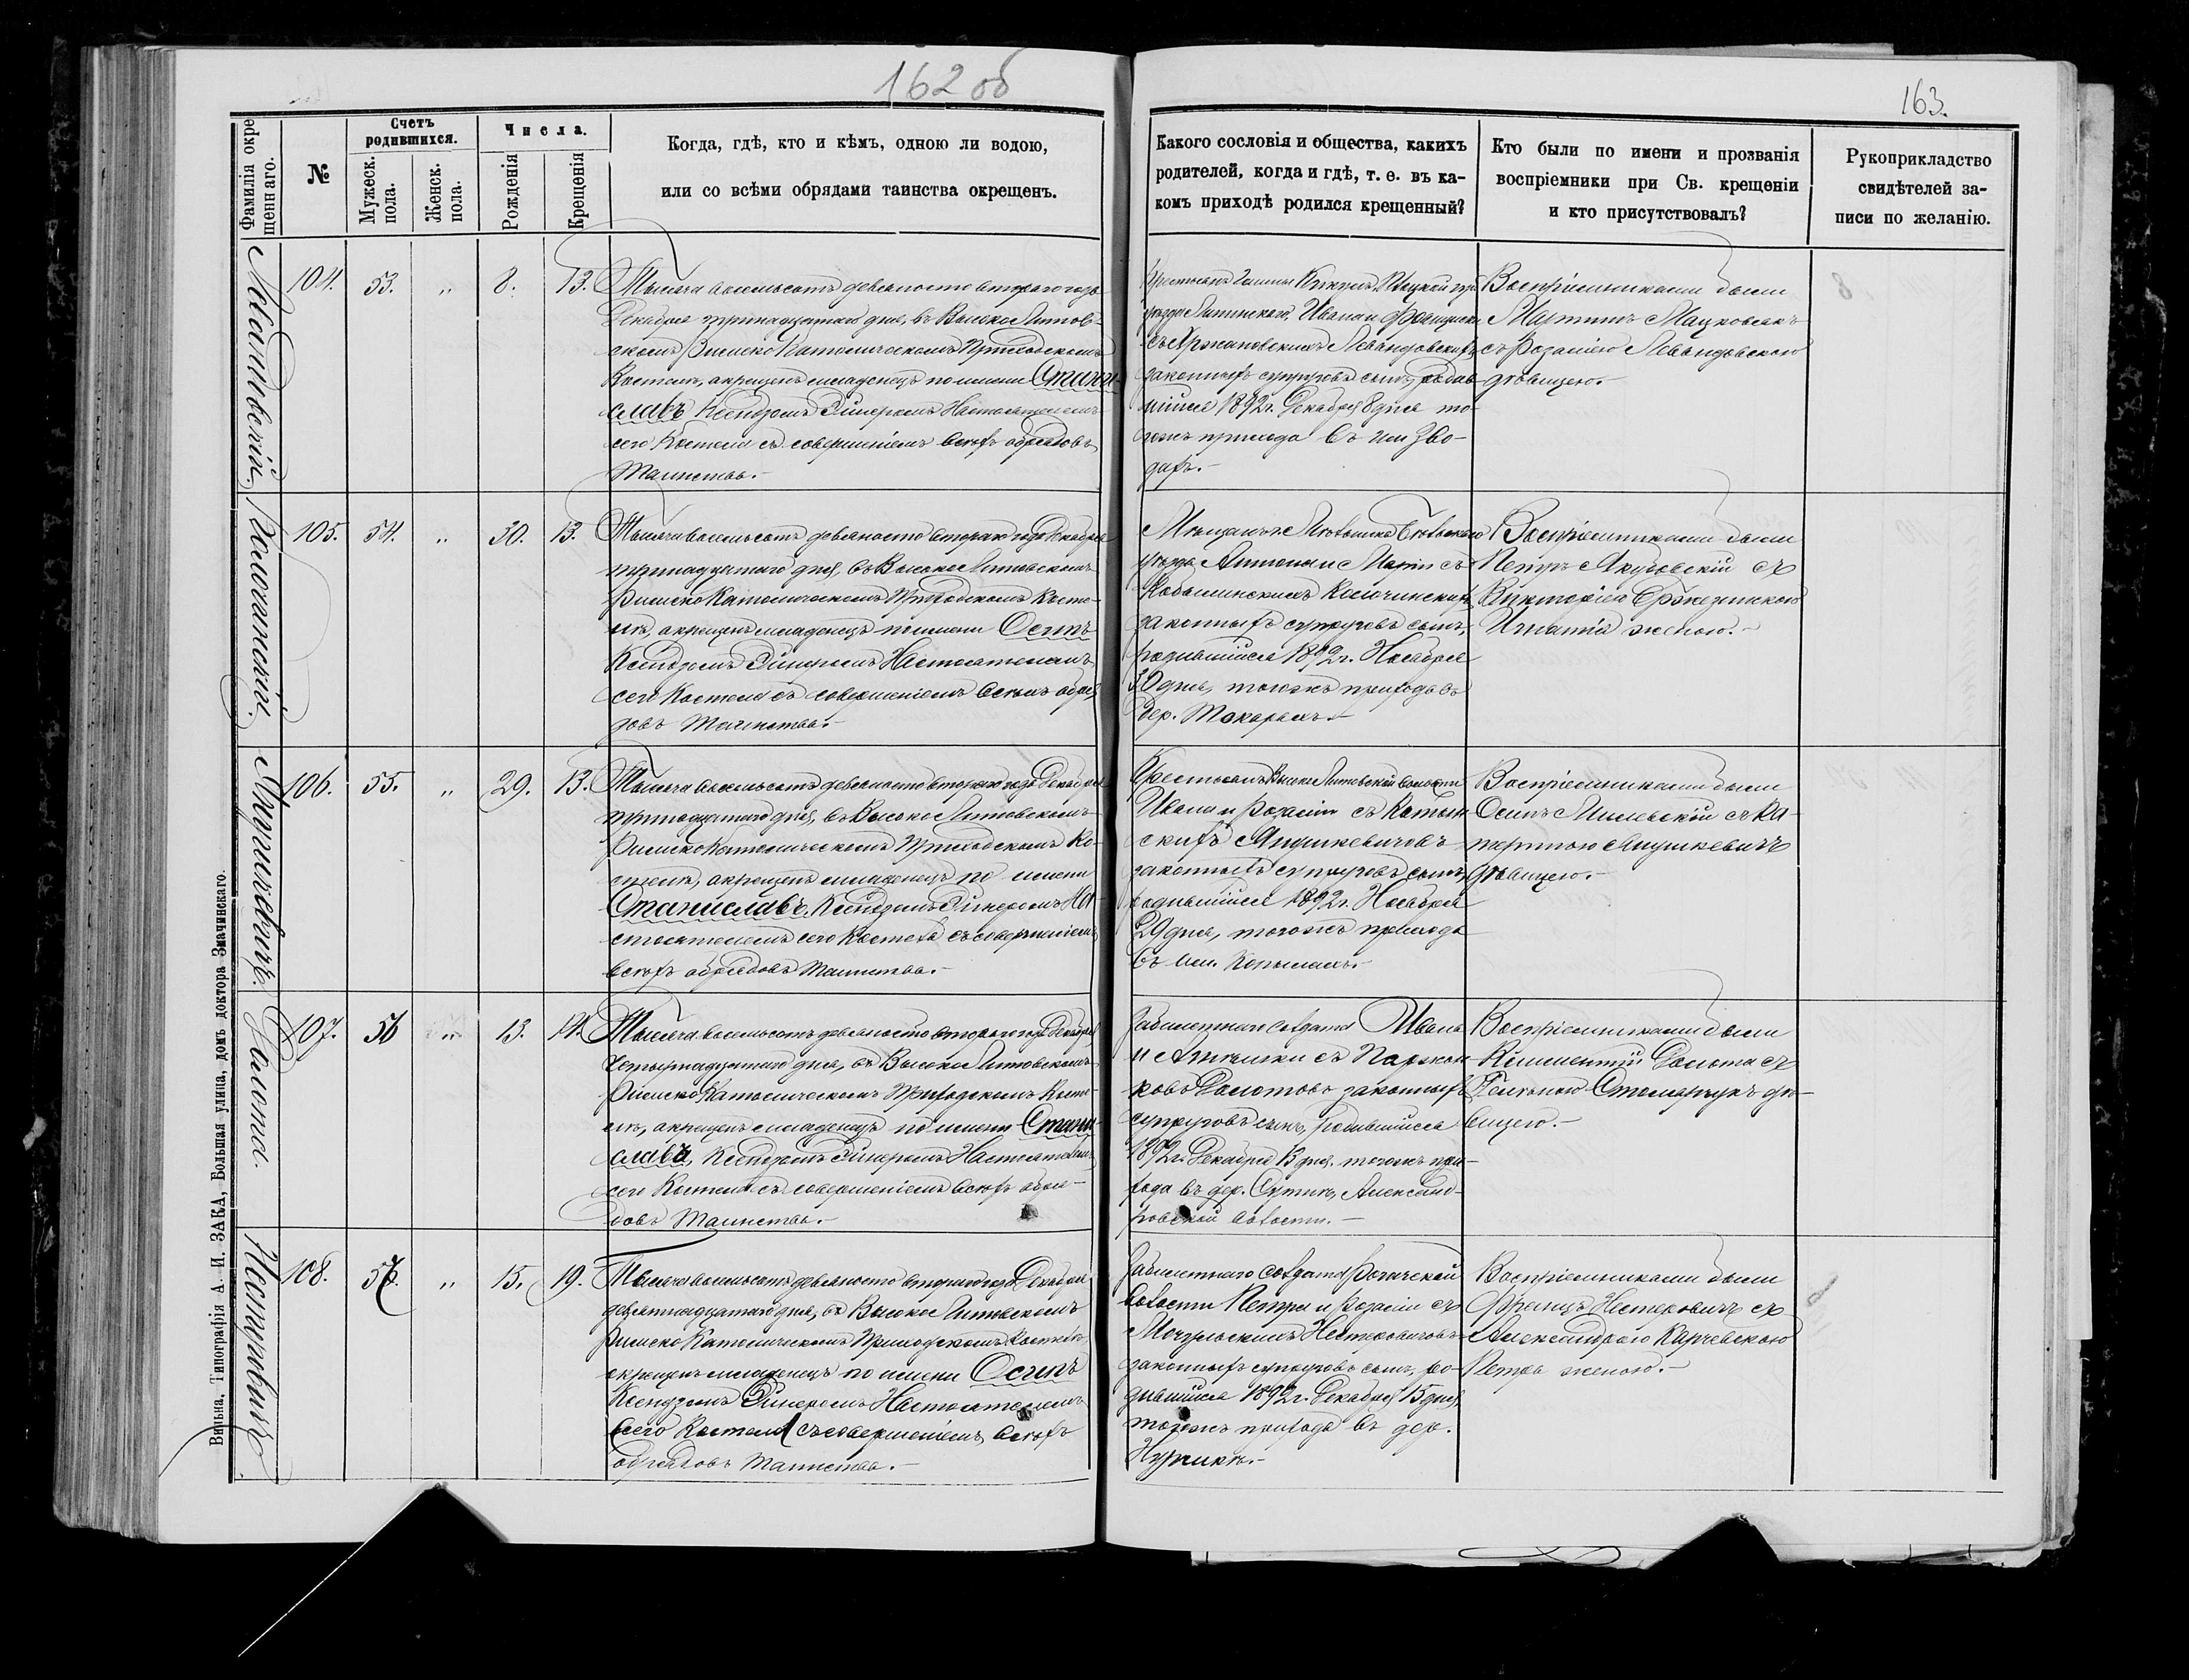 162 об
163.
Фамилія окре
щеннаго.
№
Счетъ
родившихся.
Мужеск.
пола.
Женск.
пола.
Числа.
Рожденія
Крещенія
Когда, гдѣ, кто и кѣмъ, одною ли водою,
или со всѣми обрядами таинства окрещенъ.
Какого сословія и общества, какихъ
родителей, когда и гдѣ, т. е. въ ка-
комъ приходѣ родился крещенный?
Кто были по имени и прозванія
воспріемники при Св. крещеніи
и кто присутствовалъ?
Рукоприкладство
свидѣтелей за-
писи по желанію.
Левандовскій.
104. 53. " 8. 13.
Тысяча восемьсотъ девяносто второго года
Декабря тринадцатаго дня, въ Высоко Литов-
скомъ Римско Католическомъ Приходскомъ
Костелѣ, окрещенъ младенецъ по имени Стани-
славъ Ксендзомъ Настоятелемъ
сего Костела съ совершеніемъ всѣхъ обрядовъ
Таинства.-
Ивана и Франциски
Левандовскихъ
законныхъ супруговъ сынъ, родив-
шійся 1892 г. Декабря 8 дня то-
гожъ прихода въ им. Зво-
дахъ.-
Воспріемниками были
Мартинъ Мацковякъ
съ Розаліею Левандовскою
дѣвицею.-
105. 54. " 30. 13.
Тысяча восемьсотъ девяносто второго года Декабря
тринадцатаго дня, въ Высоко Литовскомъ
Римско Католическомъ Приходскомъ Косте-
лѣ, окрещенъ младенецъ по имени Осипъ
Ксендзомъ Настоятелемъ
сего Костела съ совершеніемъ всѣхъ обря-
довъ Таинства.-
Мѣщанъ
уѣзда Антона и Маріи съ
законныхъ супруговъ сынъ,
родившійся 1892 г. Ноября
30 дня, тогожъ прихода въ
дер. Токарахъ.-
Воспріемниками были
Петръ Якубовскій съ
Викторіею
Игнатія женою.-
Янушкевичъ.
106. 55. " 29. 13.
Тысяча восемьсотъ девяносто второго года Декабря
тринадцатаго дня, въ Высоко Литовскомъ
Римско Католическомъ Приходскомъ Ко-
стелѣ, окрещенъ младенецъ по имени
Станиславъ, Ксендзомъ На-
стоятелемъ сего Костела съ совершеніемъ
всѣхъ обрядовъ Таинства.-
Крестьянъ Высоко Литовской волости
Ивана и Розаліи съ
Янушкевичовъ
законныхъ супруговъ сынъ,
родившійся 1892 г. Ноября
29 дня, тогожъ прихода
въ им.
Воспріемниками были
Осипъ Милевскій съ Ка-
териною Янушкевичъ
дѣвицею.-
Долота.
107. 56 " 13. 14.
Тысяча восемьсотъ девяносто второго года Декабря
четырнадцатаго дня, въ Высоко Литовскомъ
Римско Католическомъ Приходскомъ Косте-
лѣ, окрещенъ младенецъ по имени Стани-
славъ, Ксендзомъ Настоятелемъ
сего Костела съ совершеніемъ всѣхъ обря-
довъ Таинства.-
Забилетнаго солдата Ивана
Долотовъ законныхъ
супруговъ сынъ, родившійся
1892 г. Декабря 13 дня, тогожъ при-
хода въ дер. Александ-
ровской волости.-
Воспріемниками были
Климентій Долота съ
Столярчукъ дѣ-
вицею.-
Нестеровичъ.
108. 57. " 15. 19.
Тысяча восемьсотъ девяносто второго года Декабря
девятнадцатаго дня, въ Высоко Литовскомъ
Римско Католическомъ Приходскомъ Костелѣ
окрещенъ младенецъ по имени Осипъ
Ксендзомъ Настоятелемъ
сего Костела съ совершеніемъ всѣхъ
обрядовъ Таинства.-
Забилетнаго солдата
волости Петра и Розаліи съ
Нестеровичовъ
законныхъ супруговъ сынъ, ро-
дившійся 1892 г. Декабря 15 дня
тогожъ прихода въ дер.
Воспріемниками были
Францъ Нестеровичъ съ
Александрою Карчевскою
Петра женою.-
Вильна, Типографія А. И. ЗАКА, Большая улица, домъ доктора Значинскаго.